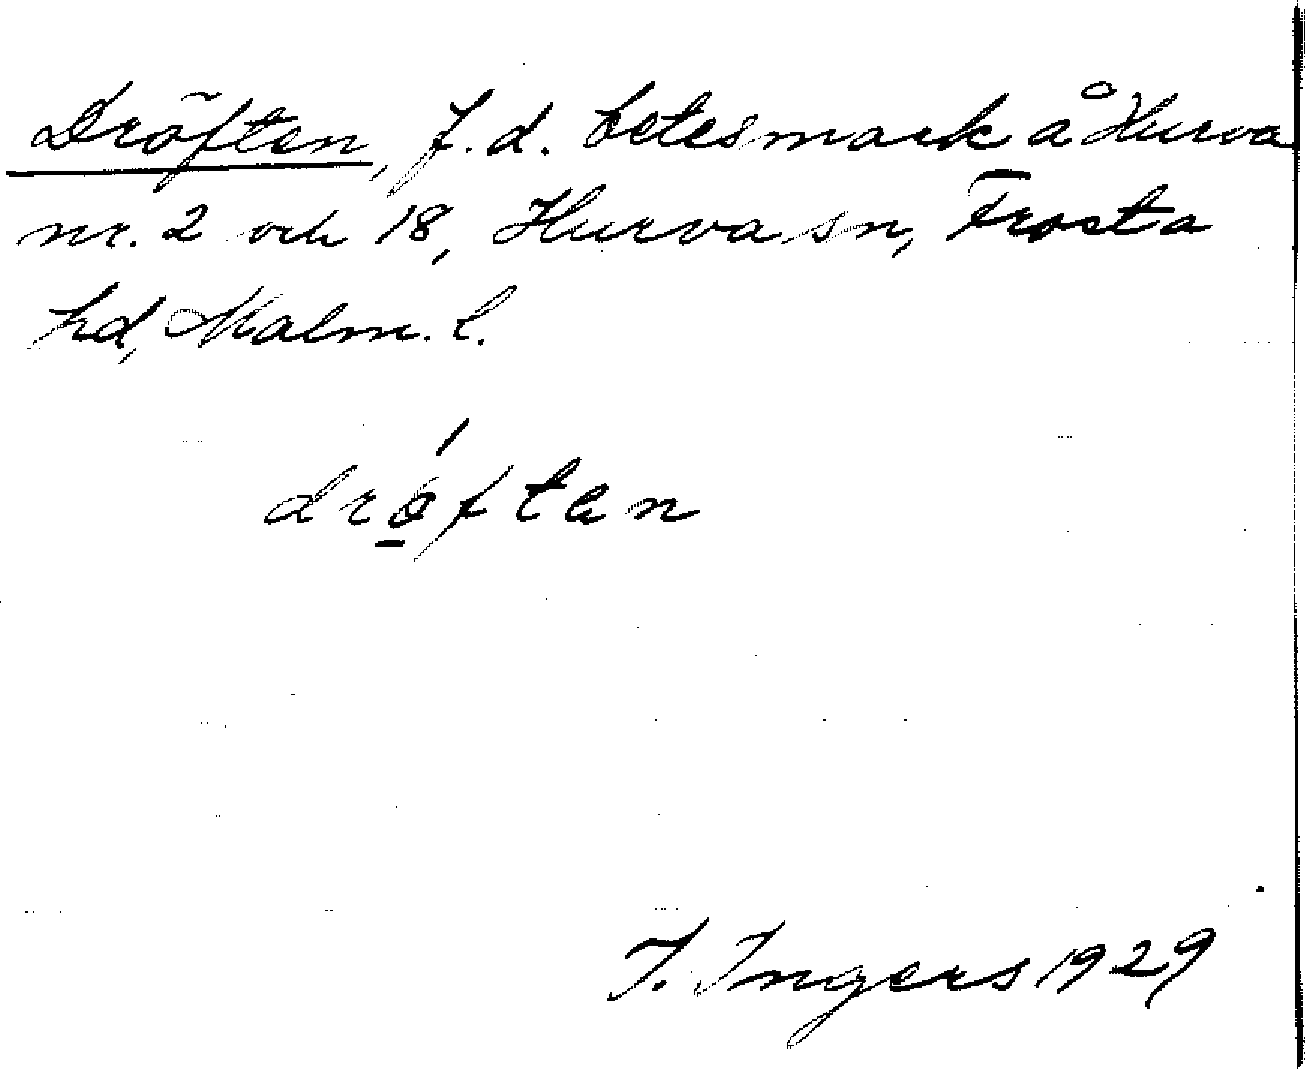 Dröften, f.d. betesmark å Hurva
nr. 2 och 18, Hurva sn, Frosta
hd, Malm. l.
drǿften
I. Ingers 1929